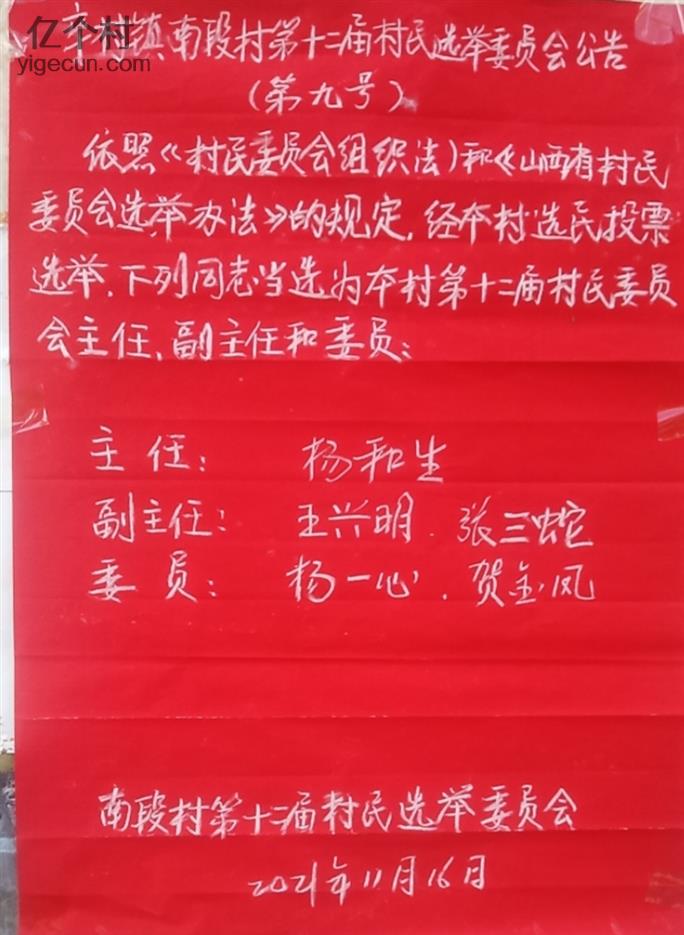 亿个村
yigecun.com
镇南段村第十二届村民选举委员会公告
（第九号）
依照《村民委员会组织法）和《山西省村民
委员会选举办法》的规定，经本村选民投票
选举、下列同志当选为本村第十二届村民委员
会主任、副主任和委员：
主任： 杨和生
副主任： 王兴明、张三蛇
委员： 杨一心、贺金凤
南段村第十二届村民选举委员会
2021年11月16日